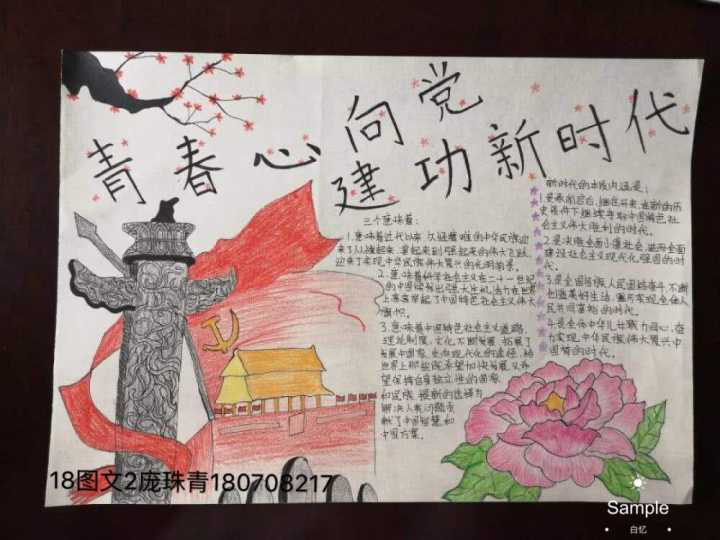 青春心向党
建功新时代
三个意味着:
1.意味着近代以来久经磨难的中华民族迎
来了从站起来、富起来到强起来的伟大飞跃,
迎来了实现中华民族伟大复兴的光明前景。
2.意味着科学社会主义在二十一世纪
的中国焕发出强大生机活力在世界
上高高举起了中国特色社会主义伟大
旗帜。
3.意味着中国特色社会主义道路,
理论,制度,文化不断发展,拓展了
发展中国家走向现代化的途径,给
世界上那些既希望加快发展又希
望保持自身独立性的国家
和民族提供了新的选择为
解决人类问题贡
献了中国智慧和
中国方案。
新时代的本质内涵是:
1.是承前启后,继往开来,在新的历
史条件下继续夺取中国特色社
会主义伟大胜利的时代。
2.是决胜全面小康社会,进而全面
建设社会主义现代化强国的时
代。
3.是全国各族人民团结奋斗,不断
创造美好生活,逐步实现全体人
民共同富裕的时代。
4.是全体中华儿女戮力同心,奋
力实现中华民族伟大复兴中
国梦的时代。
18图文2庞珠青180708217
Sample
白忆